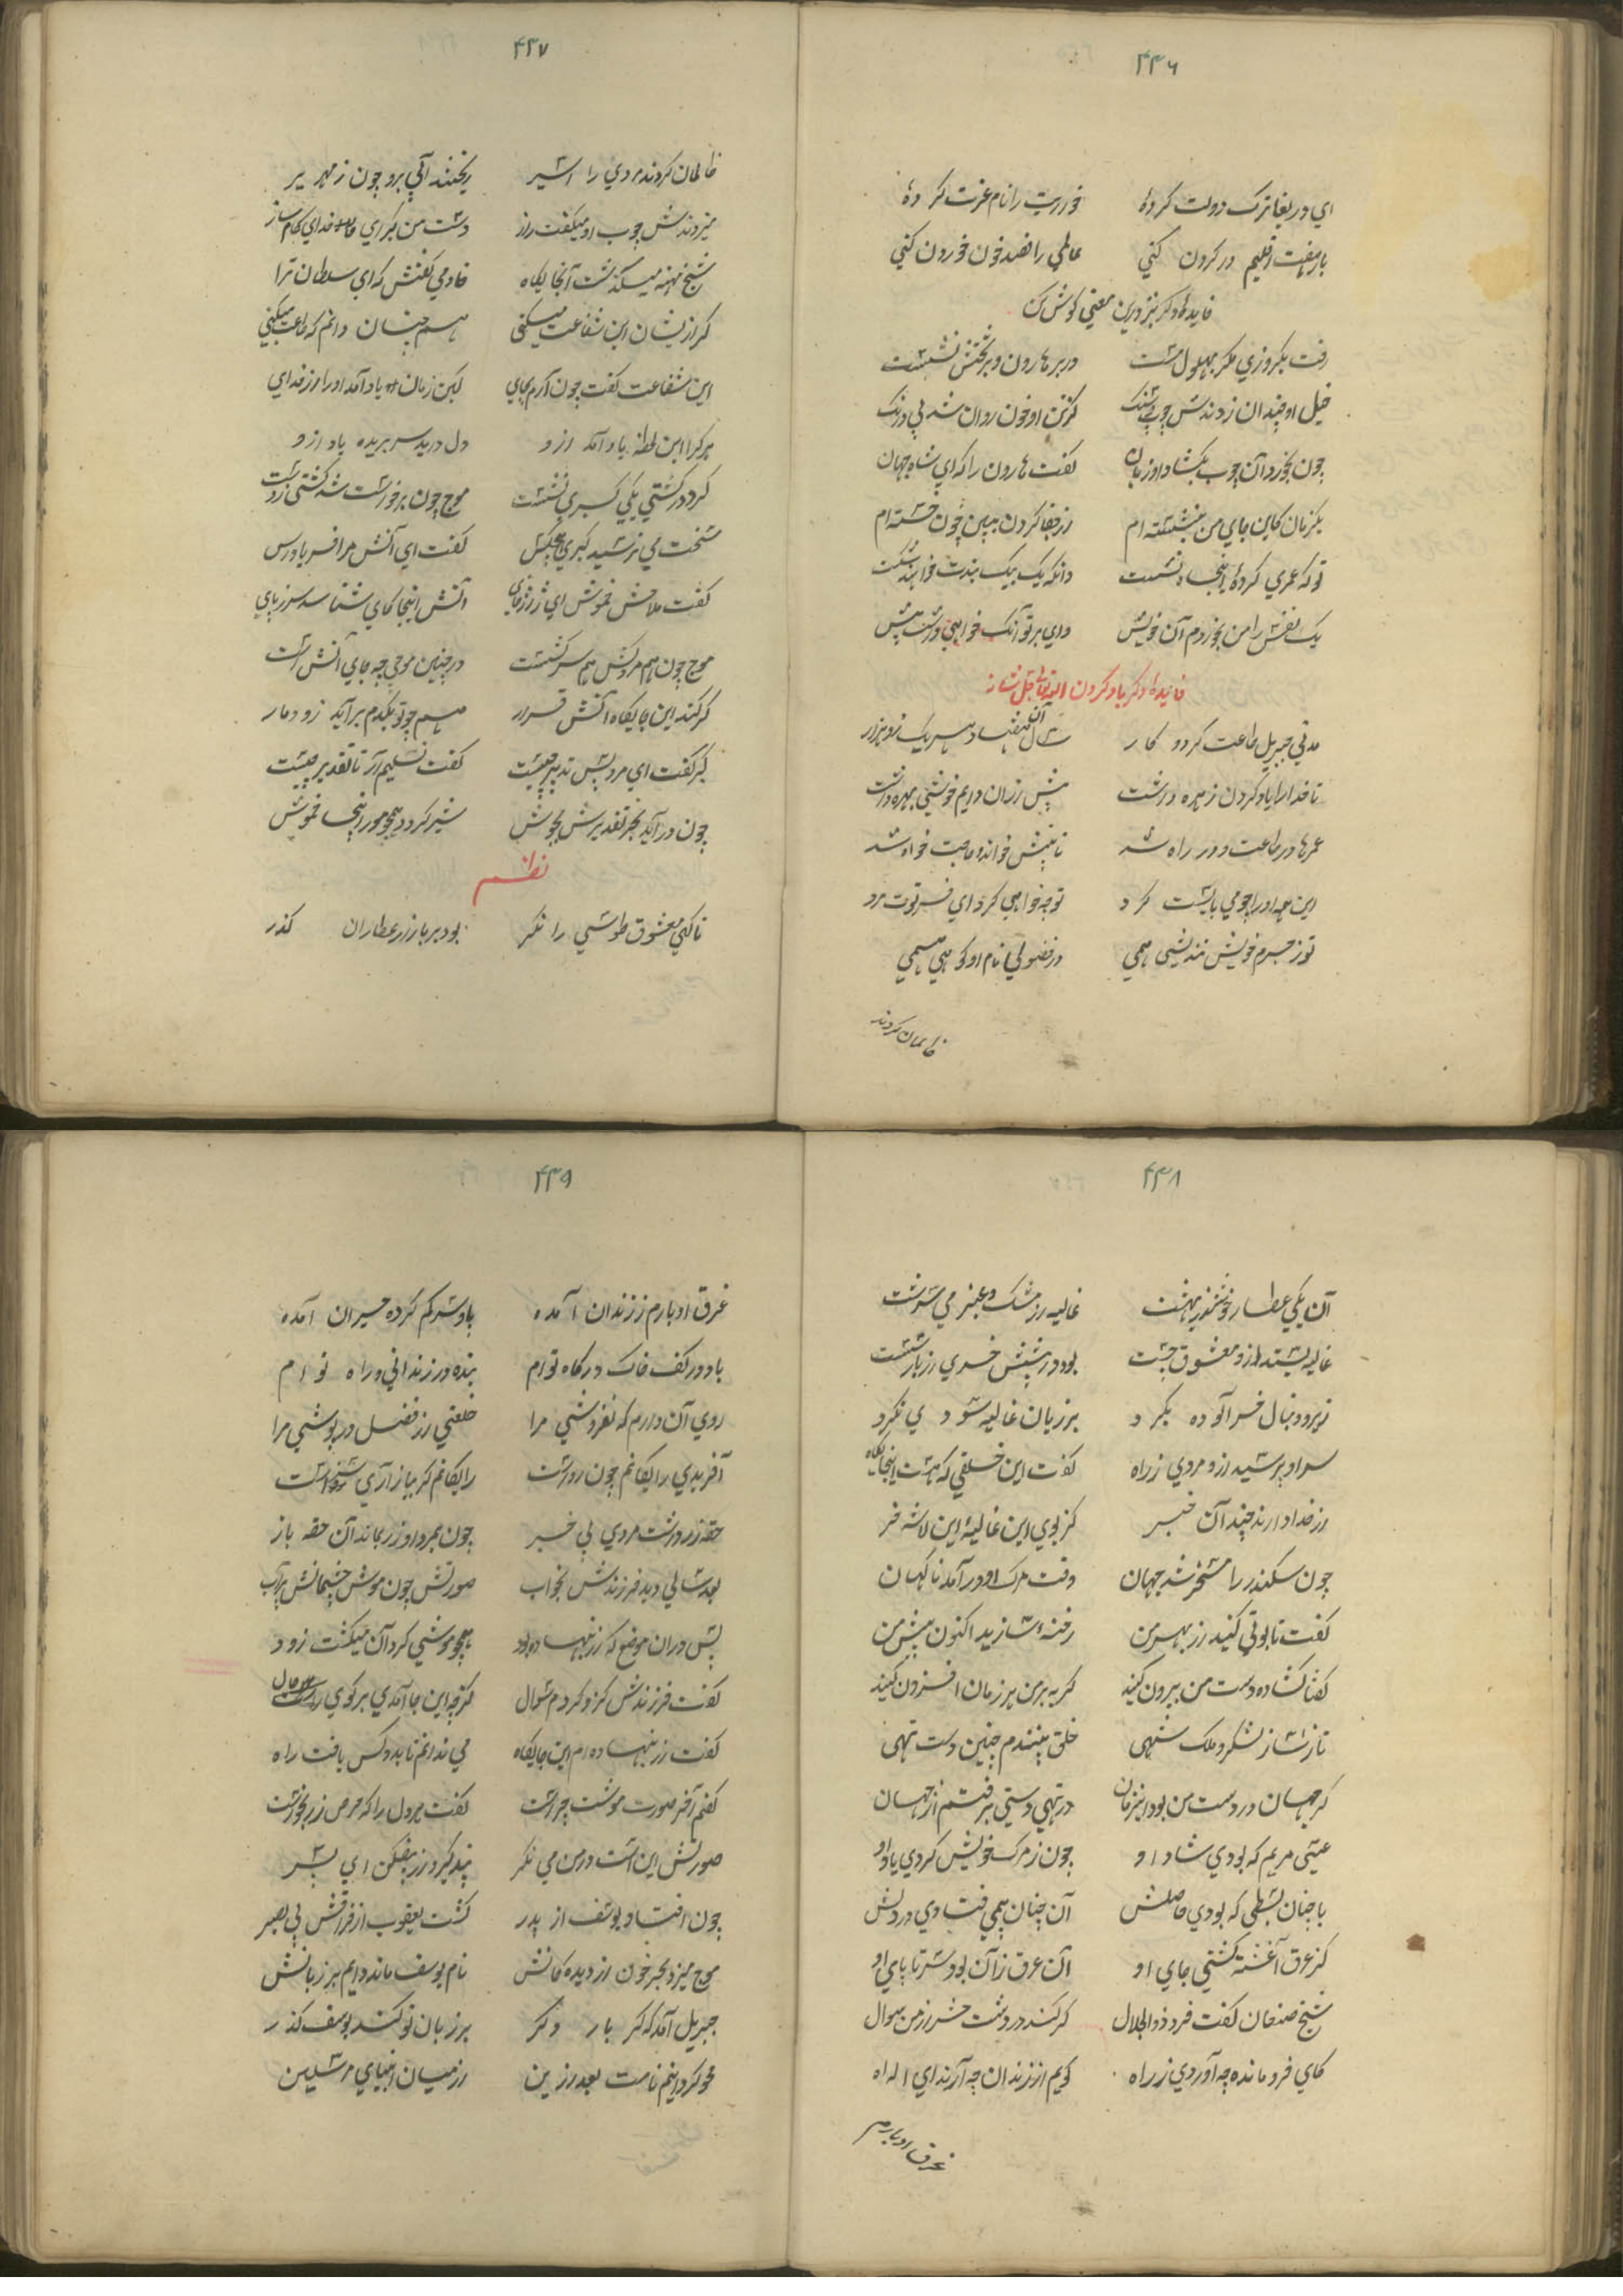 ۴۳۶
ای دریغا ترک دولت کردهٔ خورریت را نام عزت کردهٔ
بار هفت اقلیم در گردون کنی عالمی را قصد خون خوردن کنی
فایده ذکر نیز درین معنی گوش کن
رفت یکروزی مگر بهلول مست در بر هارون و بر تختش نشست
خیل او چندان زدندش چوب و سنگ کز تن او خون روان شد بی درنگ
چون بخورد آن چوب بگشاد او زبان گفت هارون را که ای شاه جهان
یکزمان کاین جای من بنشسته ام از قفا خوردن ببین چون خسته ام
تو که عمری کردهٔ اینجا نشست وانکه یک یک بندت خواهند شکست
یک نفس را من بخوردم آن خویش وای بر تو آنک خواهی داشت پیش
فایده ذکر یاد کردن الله تعالی جل شانه
مدتی جبریل طاعت کرد و کار سال آن هفتاد هر یک زو هزار
تا خدا را یاد کردن زهره داشت پیش ازان دایم خموشی بهره داشت
عمرها در طاعت و در راه شد تا به پیش خواند و حاجت خواه شد
این همه او را چو می بایست کرد تو چه خواهی کرد ای فرتوت مرد
تو ز جرم خویش نندیشی همی در فضولی نام او گویی همی
ظالمان کردند
۴۳۷
ظالمان کردند مردی را اسیر ریختند آبی برو چون زمهریر
میزدندش چوب او میگفت راز دست من گیر ای خدای کارساز
شیخ مهنه میگذشت آنجایگاه خادمی گفتش که ای سلطان ترا
گر ازیشان این شفاعت میکنی هم چنان دانم که طاعت میکنی
این شفاعت گفت چون آرم بجای لیکن زمان یاد آمد او را از خدای
هر کرا این لحظه یاد آمد ازو دل درید سر بریده باد ازو
کرد در کشتی یکی گبری نشست موج چون برخواست شد کشتی ز دست
سخت می ترسید گبری کفت ای آتش مرا فریاد رس
گفت ملاحش خموش ای ژاژخای آتش اینجا کی شناسد سر ز پای
موج چون هم مردکش هم سرکشست در چنین موجی چه جای آتش است
گر کند این جایگاه آتش قرار هم چو تو یکدم برآید زو دمار
گبر گفت ای مرد پس تدبیر چیست گفت تسلیم آر تا تقدیر چیست
چون درآید بحر تقدیرش بجوش شیر گردد همچو مور اینجا خموش
نظم
تا کهی معشوق طوسی را نگر بود بر بازار عطاران گذر
۴۳۸
آن یکی عطار خوشتر از بهشت غالیه از مشک و عنبر می سرشت
غالیه بستد ازو معشوق چست بود در پیشش خری از بار سست
زیر دنبال خر آلوده بکرد بر زیان غالیه سودی نکرد
سر او پرسید ازو مردی ز راه گفت این خلقی که هست اینجایگاه
از خدا دارند چندان خبر کز بوی این غالیه این لاشه خر
چون سکندر را مسخر شد جهان وقت مرگ او درآمد ناگهان
گفت تابوتی کنید از بهر من رخنه سازید اکنون پیش من
کف گشاده دست من بیرون کنید گریه بر من هر زمان افزون کنید
تا ز ساز لشکر و ملک شهی خلق بینندم چنین دست تهی
گر جهان در دست من بود اینزمان در تهی دستی برفتم از جهان
عیسی مریم که بودی شاد او چون ز مرگ خویش کردی یاد او
با چنان بسطی که بودی حاصلش آن چنان بیمی فتادی در دلش
کز عرق آغشته گشتی جای او آن عرق زان بود سر تا پای او
شیخ صنعان گفت فرد ذو الجلال گر کند در دشت حشر از من سوال
کای فرو مانده چه آوردی ز راه گویم از زندان چه آرند ای اله
غرق ادبارم
۴۳۹
غرق ادبارم ز زندان آمده پا و سر گم کرده حیران آمده
باد در کف خاک درگاه توام بنده و زندانی و راه توام
روی آن دارم که نفروشی مرا خلعتی از فضل در پوشی مرا
آفریدی رایگانم چون رواست رایگانم گر بیامرزی سزاست
حقه زر داشت مردی بی خبر چون بمرد او زر بماند آن حقه باز
بعد سالی دید فرزندش بخواب صورتش چون موش چشمانش پر آب
پس دران موضع که زر بنهاده بود همچو موشی گرد آن میگشت زود
گفت فرزندش کزو کردم سوال کز چه این جا آمدی بر گوی حال
گفت زر بنهاده ام این جایگاه می ندانم تا بدو کس یافت راه
گفتم آخر صورت موشت چراست گفت هر دل را که حرص زر بخواست
صورتش این است در من می نگر پند گیر و زر بیفکن ای پسر
چون افتاد یوسف از پدر گشت یعقوب از فراقش بی بصر
موج میزد بحر خون از دیدگانش نام یوسف مانده دایم بر زبانش
جبریل آمد که گر بار دگر بر زبان تو کند یوسف گذر
محو گردانیم نامت بعد ازین از میان انبیای مرسلین